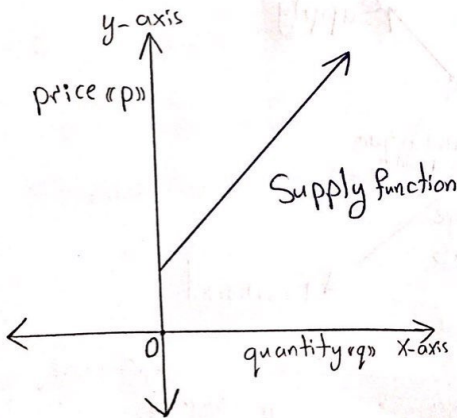 y-axis
price «p»
Supply function
0
quantity «q» x-axis